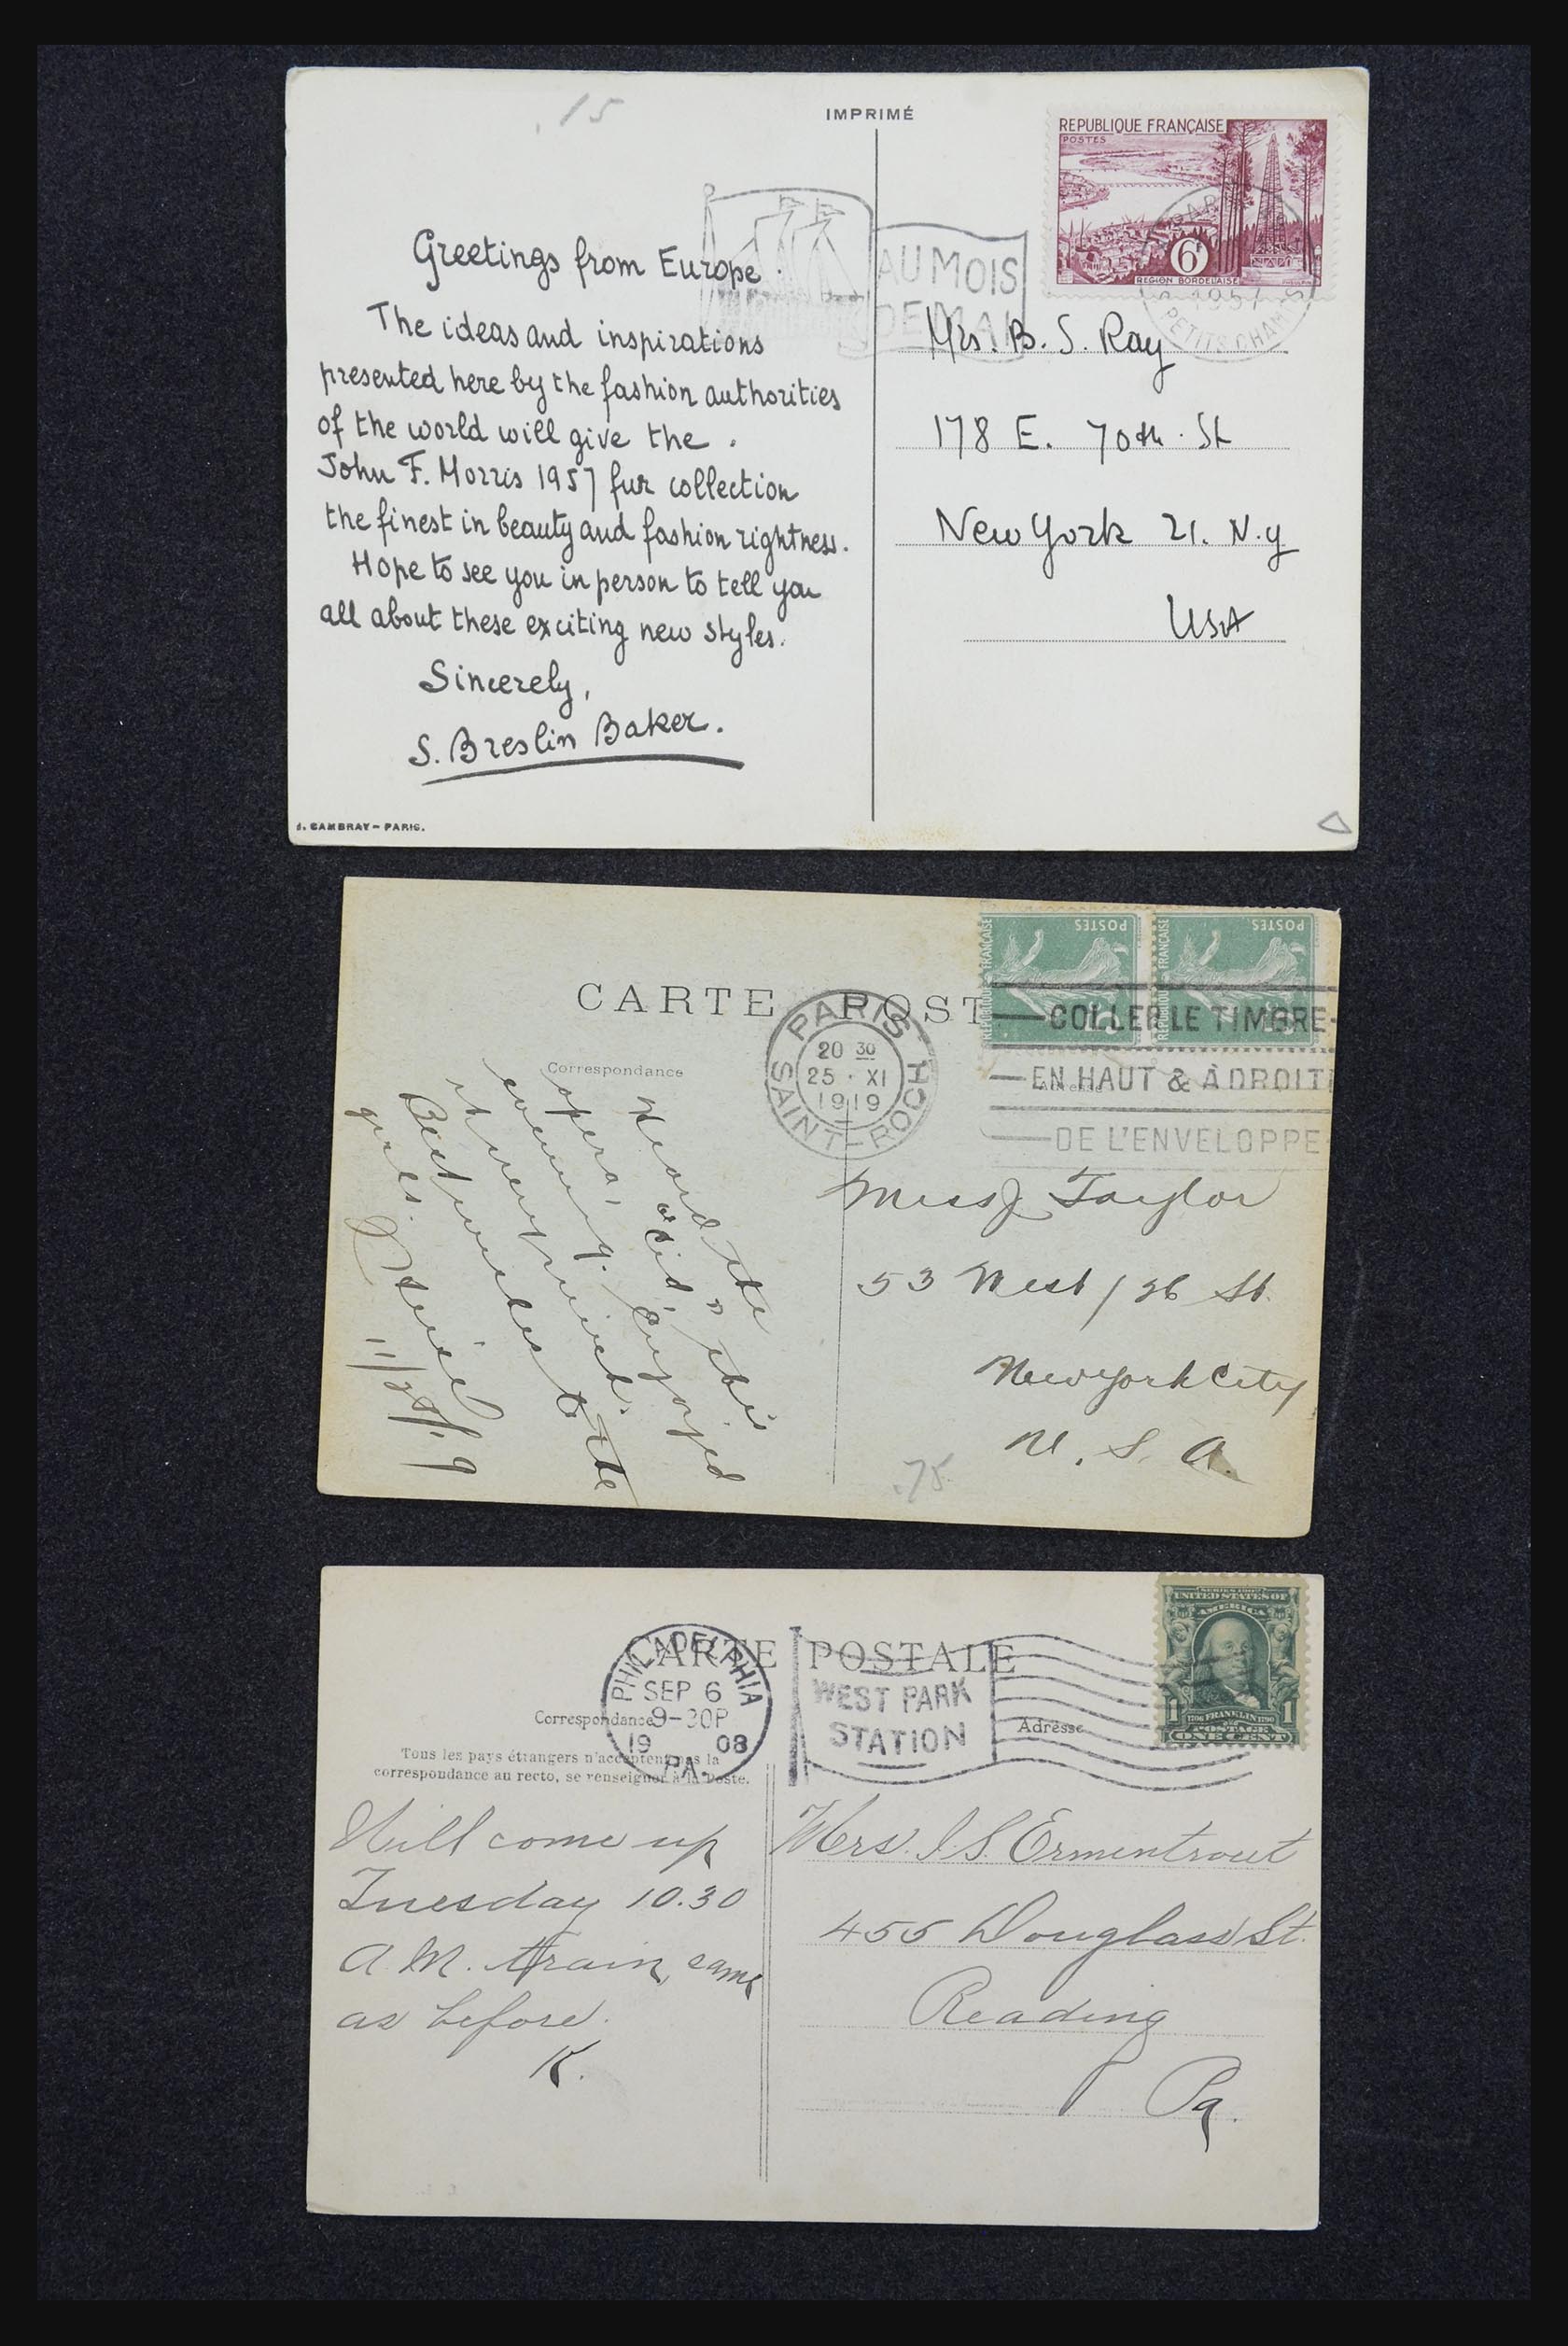 .15
IMPRIMÉ
REPUBLIQUE FRANÇAISE
POSTES
6F
REGION BORDELAISE
AU MOIS
DE MAI
1957
PETITS CHAMPS
Greetings from Europe.
The ideas and inspirations
presented here by the fashion authorities
of the world will give the
John F. Morris 1957 fur collection
the finest in beauty and fashion rightness.
Hope to see you in person to tell you
all about these exciting new styles.
Sincerely,
S. Breslin Baker.
Mrs. B. S. Ray
178 E. 70th. St
New York 21. N.y
USA
J. CAMBRAY - PARIS.
CARTE POST
Correspondance
PARIS
20 30
25 · XI
1919
SAINT-ROCH
POSTES
POSTES
FRANÇAISE
FRANÇAISE
COLLER LE TIMBRE
EN HAUT & À DROITE
DE L'ENVELOPPE
Heard the
opera, "Cid," this
evening. Enjoyed
it very much.
Best wishes to the
girls.
11/25/19
Miss J Taylor
53 West 126 St.
New York City
U. S. A.
.75
CARTE POSTALE
PHILADELPHIA
SEP 6
9-30P
19 08
PA.
WEST PARK
STATION
SERIES 1902
UNITED STATES OF
AMERICA
1 1
1706 FRANKLIN 1790
POSTAGE
ONE CENT
Correspondance
Adresse
Tous les pays étrangers n'acceptent pas la
correspondance au recto, se renseigner à la Poste.
Will come up
Tuesday 10.30
A. M. train, same
as before.
K.
Mrs. I. S. Ermentrout
455 Douglass St.
Reading
Pa.